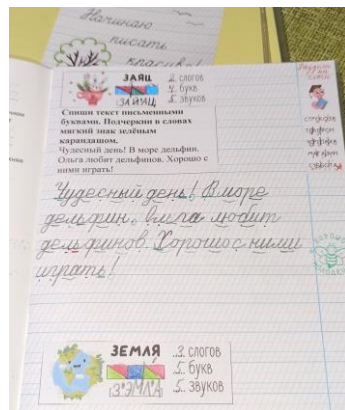 Начинаю
писать
красиво!
ЗАЯЦ
2 слогов
4 букв
5 звуков
Спиши текст письменными
буквами. Подчеркни в словах
мягкий знак зелёным
карандашом.
Чудесный день! В море дельфин.
Ольга любит дельфинов. Хорошо с
ними играть!
Чудесный день! В море
дельфин. Ольга любит
дельфинов. Хорошо с ними
играть!
ЗЕМЛЯ
2 слогов
5 букв
5 звуков